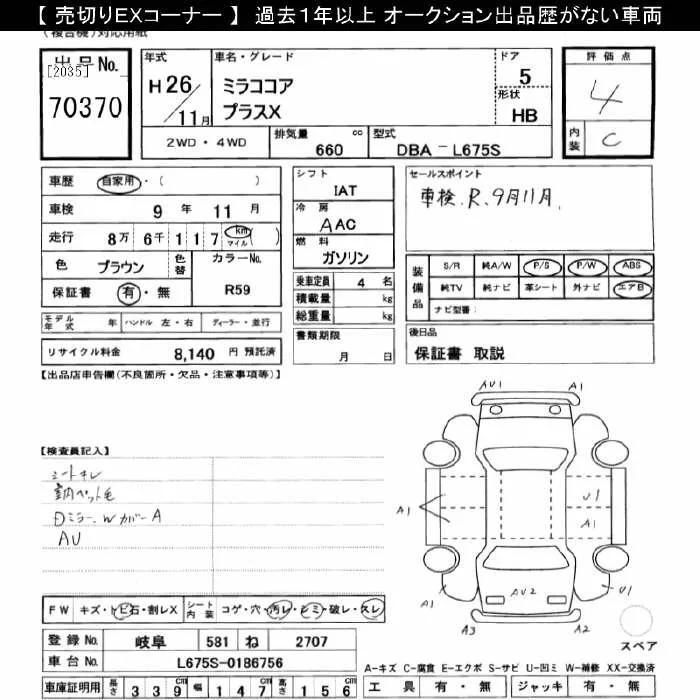 【 売切りEXコーナー 】 過去1年以上 オークション出品歴がない車両
(複合機)対応用紙
出品No.
[2035]
70370
年式
H26/11月
車名・グレード
ミラココア
プラスX
ドア
5
形状
HB
評価点
4
内装
C
2WD・4WD
排気量 cc
660
型式
DBA-L675S
車歴 自家用・( )
車検 9年 11月
走行 8万 6千 1 1 7 km マイル ( )
色 ブラウン 色替 カラーNo.
保証書 有・無 R59
モデル年式 年 ハンドル 左・右 ディーラー・並行
リサイクル料金 8,140 円 預託済
シフト
IAT
冷房
AAC
燃料
ガソリン
乗車定員 4 名
積載量 kg
総重量 kg
書類期限
月 日
セールスポイント
車検、R、9月11月、
装備品
S/R 純A/W P/S P/W ABS
純TV 純ナビ 革シート 外ナビ エアB
ナビ型番:
後日品
保証書 取説
【出品店申告欄(不良箇所・欠品・注意事項等)】
【検査員記入】
シートキレ
室内ペット毛
Dミラー、Wカバー A
AU
AU1 A1
A1 U1
A1
A1 AU2 U1
A3 A2
スペア
FW キズ・トビ石・割レX シート内装 コゲ・穴・汚レ・シミ・破レ・スレ
登録No. 岐阜 581 ね 2707
車台No. L675S-0186756
車庫証明用 長さ 339cm 幅 147cm 高さ 156cm
A-キズ C-腐食 E-エクボ S-サビ U-凹ミ W-補修 XX-交換済
工具 有・無 ジャッキ 有・無